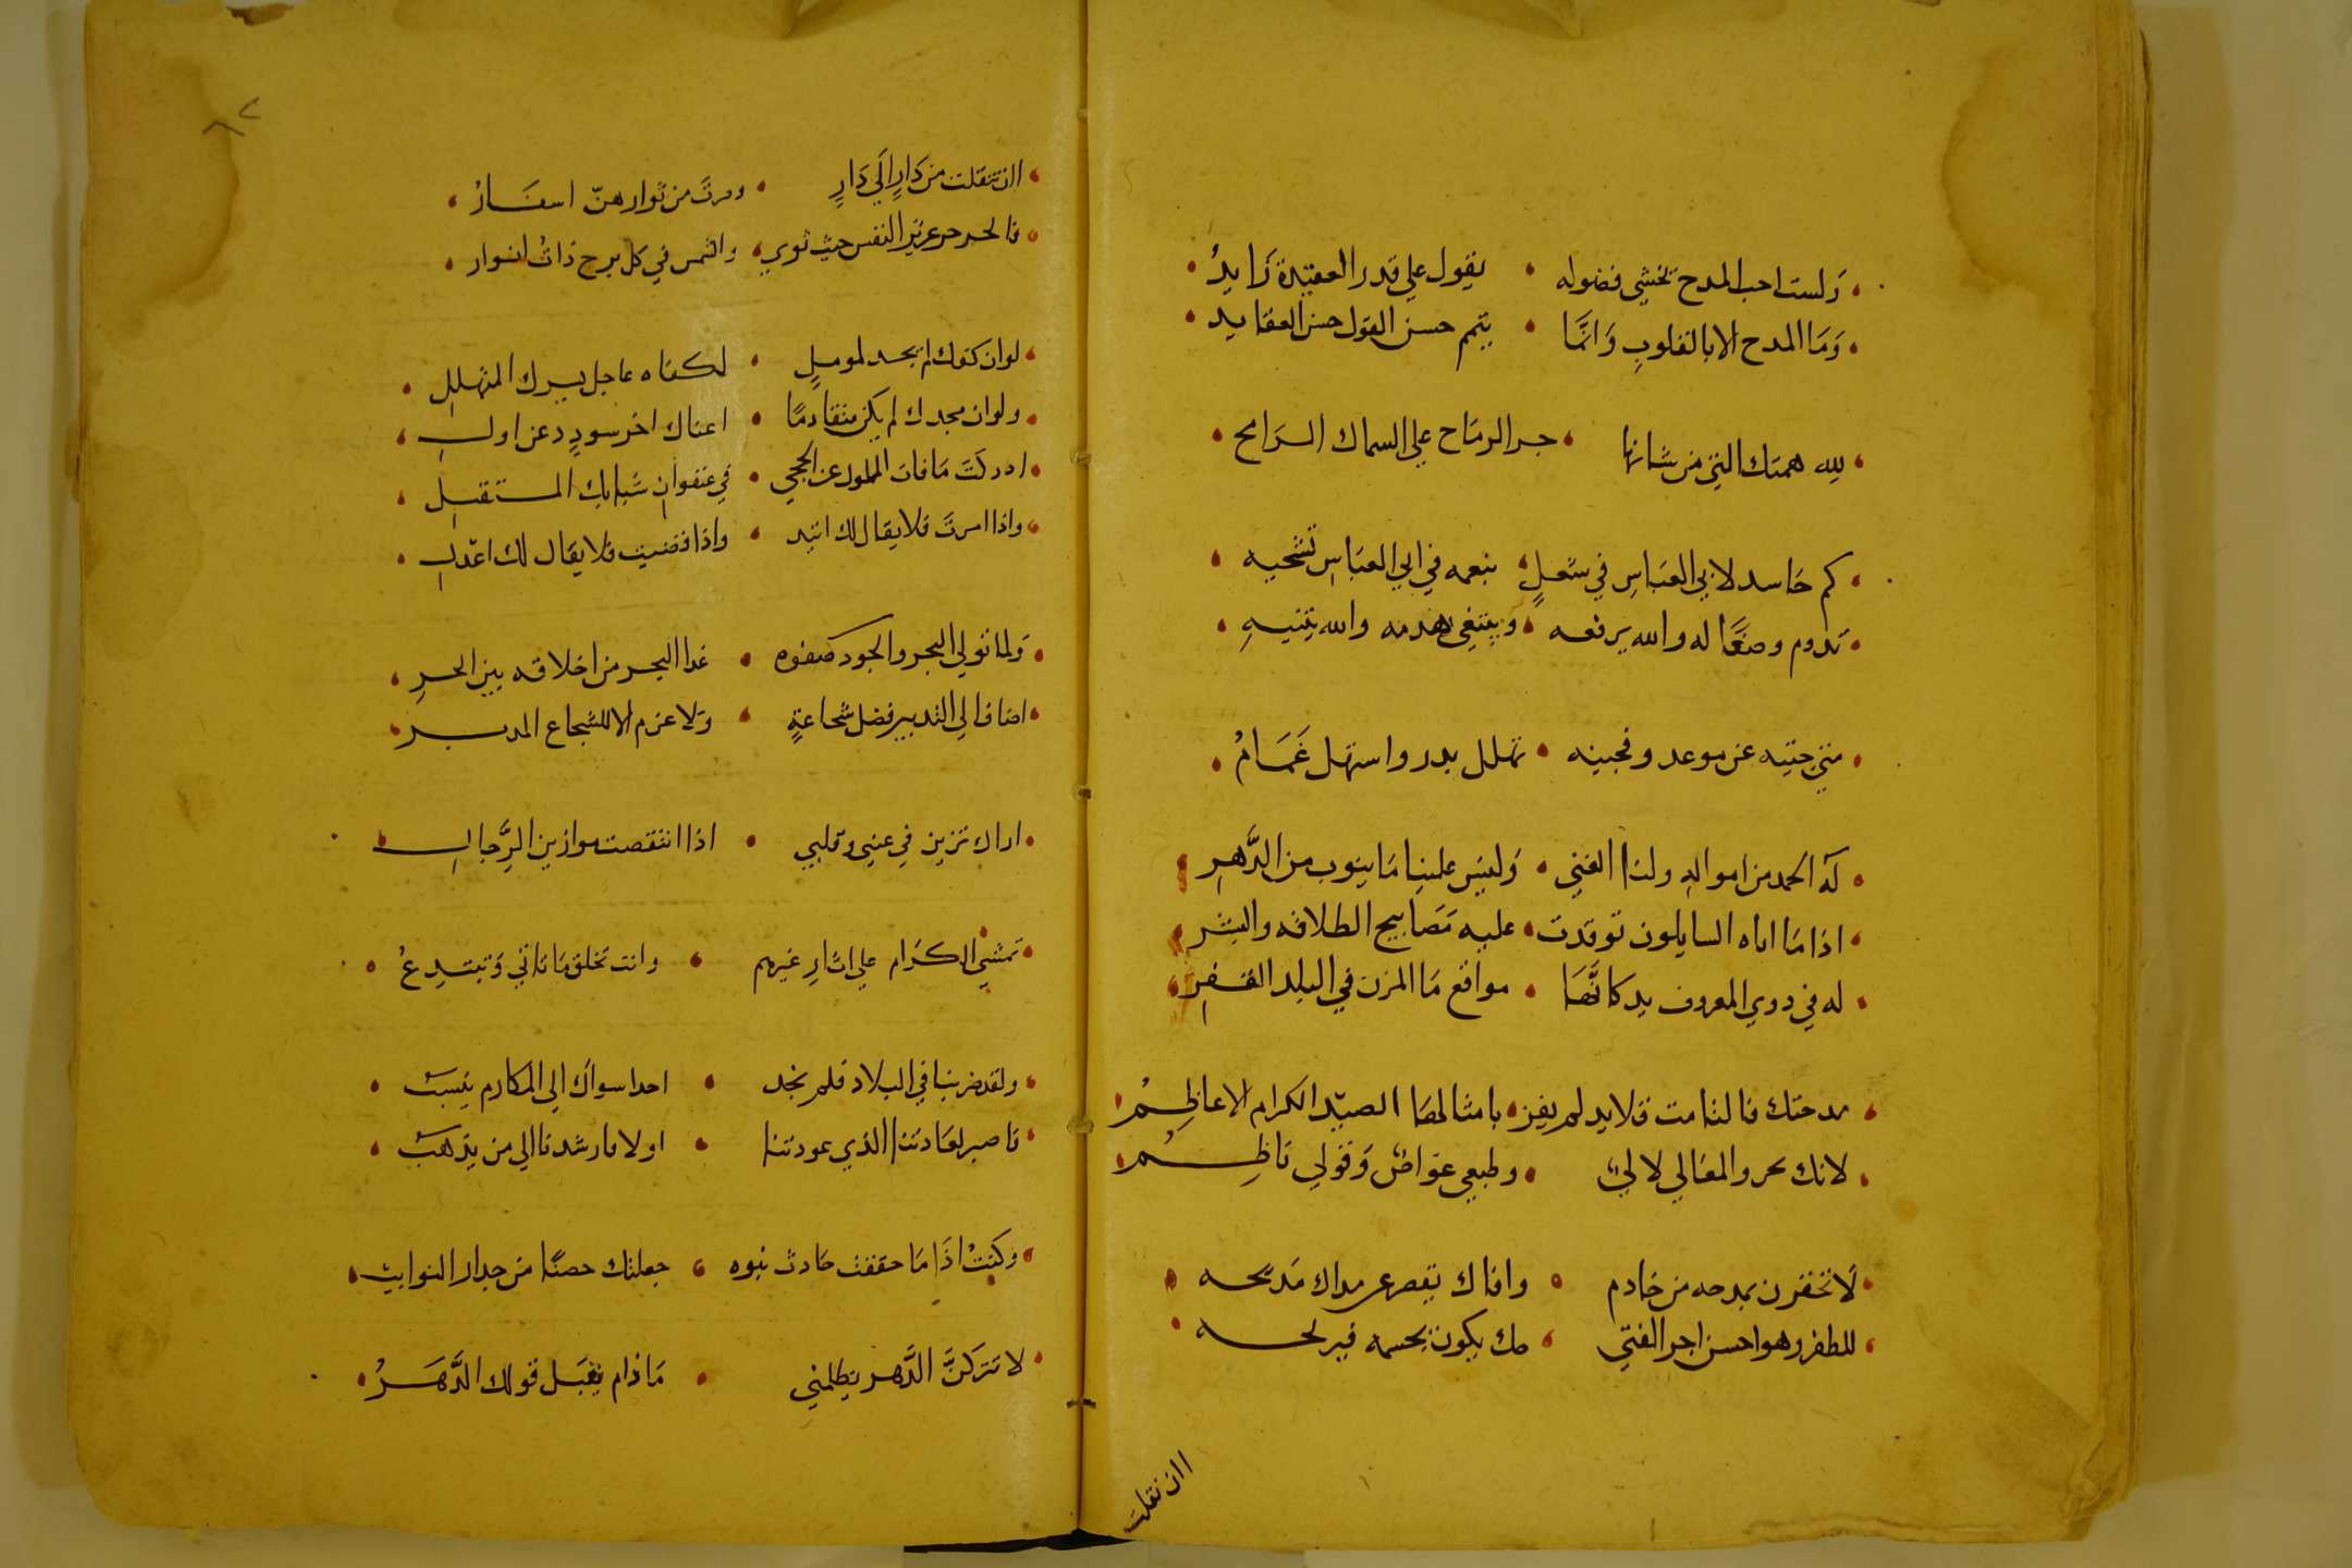 ولست احب المدح تخشي فضوله • يقول علي قدر العقيدة زايدُ
وَمَا المدح الا بالقلوبِ وَانَّما • يتم حسن القول حسن العقايد
لله همتك التي من شانها • جر الرماح علي السماك الرامح
كم حَاسد لابي العبَاسِ في شغلٍ • بنعمه في ابي العبَاسِ تشجيه
تدوم وضعًا له والله يرفعه • ويبتغي هدمه والله يبنيهِ
متي جيته عن موعد وفجيته • تهلل بدر واستهل غَمَامُ
له الحمد من امواله ولنا الغني • وَليس علينا مَا ينوب من الدَّهرِ
اذا مَا اتاه السايلون توقدت • عليه مَصَابيح الطلاقه والبشر
له في ذوي المعروف يد كانَّهَا • مواقع مَا المزن في البلد القفرِ
مدحتك فالتامت قلايد لم يفز • بامثالهَا الصيد الكرام الاعاظِمُ
لانك بحر والمعَالي لالئ • وطبعي غواص وَقولي نَاظِمُ
لَا تحقرن بمدحه من خادم • وافاك يقصر عن مداك مَديحه
للظفر وهو احسن اجر الفتي • يكون بجسمه
اان نقلت
٦٢
اان تنقلت من دَارٍ الَي دَارٍ • وصرتَ من ثوار هنّ اسفَارْ
فالحر حر عزيز النفس حيث ثوي • والشمس في كل برج ذاتُ انوار
لو ان كفك لم تجد لموملٍ • لكفاه عاجل بشرك المتهللِ
ولو ان مجدك لم يكن متقادمًا • اغناك اخر سوددٍ عن اولِ
ادركتَ مَا فات الملوك عن الحجي • في عنفوان شبابك المستقبلِ
واذا امرتَ فلا يقال لك اتيد • واذا قضيت فلا يقال لك اعدلِ
وَلما تولي البحر والجود كفوه • غدا البحر من اخلاقه بين البحرِ
اضاف الي التدبير فضل شجاعةٍ • وَلا عزم الا للشجاع المدبر
اراك تزين في عيني وقلبي • اذا انتقصت موازين الرِّجالِ
تمشي الكرَام علي اثارِ غيرهم • وانت تخلق مَا تاتي وَتبتدِعُ
ولقد ضربنا في البلاد فلم نجد • احدا سواك الي المكارم ينسبُ
فاصبر لعَادتنا الذي عودتنا • او لا فارشدنا الي من يذهبُ
وكنتُ اذَا مَا حادث نبوه • جعلتك حصنًا من حدار النوايب
لا تتركنَّ الدَّهر يظلمني • مَا دام يقبَل قولك الدَّهَرُ